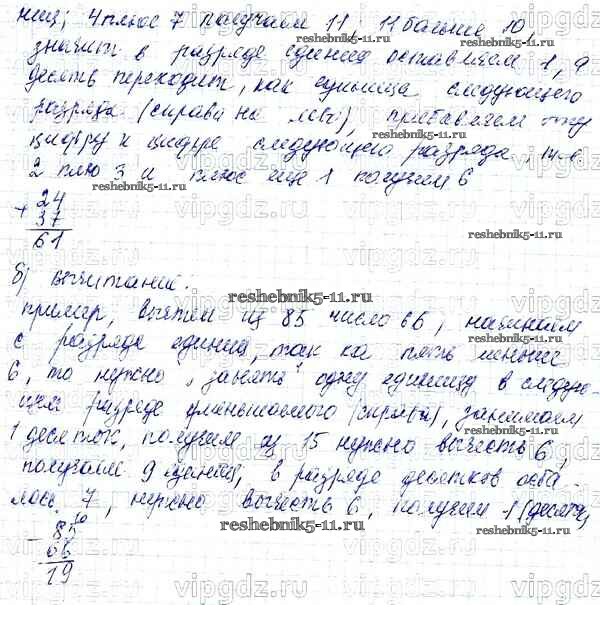 ниц; 4 плюс 7 получаем 11, 11 больше 10,
значит в разряде единиц оставляем 1, а
десять переходит, как единица следующего
разряда (справа на лево), прибавляем эту
цифру к цифре следующего разряда, т.е.
2 плюс 3 и плюс еще 1 получим 6
+ 24
37
61
б) вычитание:
пример, вычтем из 85 число 66, начинаем
с разряда единиц, так ка пять меньше
6, то нужно „занять" одну единицу в следую-
щем разряде уменьшаемого (справа), занимаем
1 десяток, получим из 15 нужно вычесть 6,
получаем 9 единиц, в разряде десятков оста-
лось 7, нужно вычесть 6, получим 1 (десяток)
- 85 10
66
19
reshebnik5-11.ru
vipgdz.ru